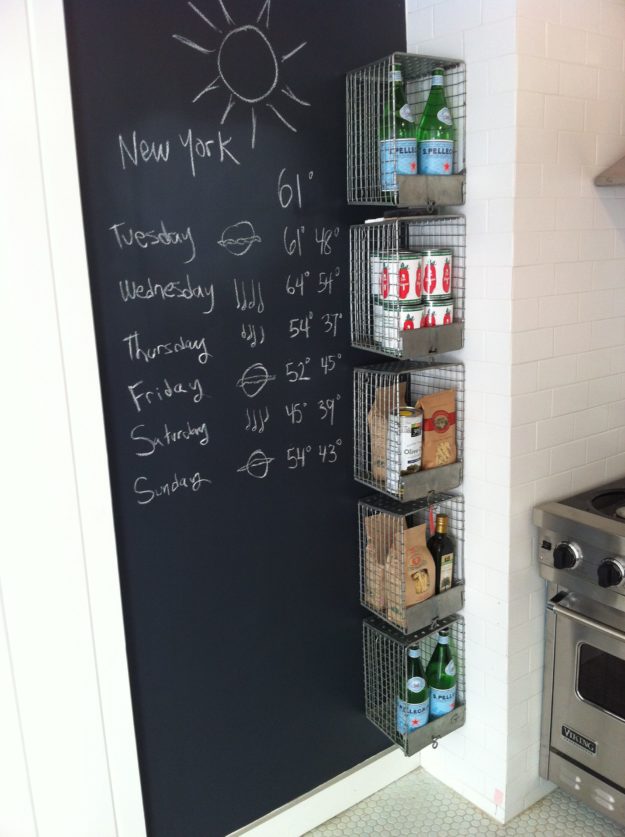 New York
61°
Tuesday 61° 48°
Wednesday 64° 54°
Thursday 54° 37°
Friday 52° 45°
Saturday 45° 39°
Sunday 54° 43°
S.PELLEGRINO
S.PELLE
Olive
S.PELLEGRI
S.PELL
VIKING